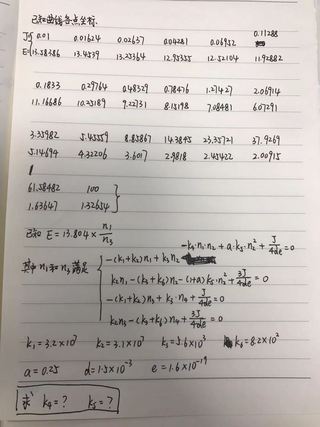 已知曲线各点坐标
J=0.01 0.01624 0.02637 0.04281 0.06952 0.11288
E=13.58386 13.4539 13.25364 12.95355 12.52104 11.92882
0.1833 0.29764 0.48329 0.78476 1.27427 2.06914
11.16686 10.25189 9.22731 8.15198 7.08481 6.07291
3.35982 5.45559 8.85867 14.3845 23.35721 37.9269
5.14694 4.32206 3.6017 2.9818 2.45422 2.00915
61.58482 100
1.63647 1.32654
已知 E = 13.804 × n₁/n₃
-k₄·n₁·n₂ + a·k₅·n₂² + J/4de = 0
其中 n₁和n₃满足 -(k₁+k₂)n₁ + k₃n₂
k₂n₁-(k₃+k₆)n₂-(1+a)k₅·n₂² + 3J/4de = 0
-(k₁+k₂)n₃ + k₃·n₄ + J/4de = 0
k₂n₃-(k₃+k₆)n₄ + 3J/4de = 0
k₁=3.2×10⁷ k₂=3.1×10⁷ k₃=5.6×10³ k₆=8.2×10²
a=0.25 d=1.5×10⁻³ e=1.6×10⁻¹⁹
求 k₄=? k₅=?